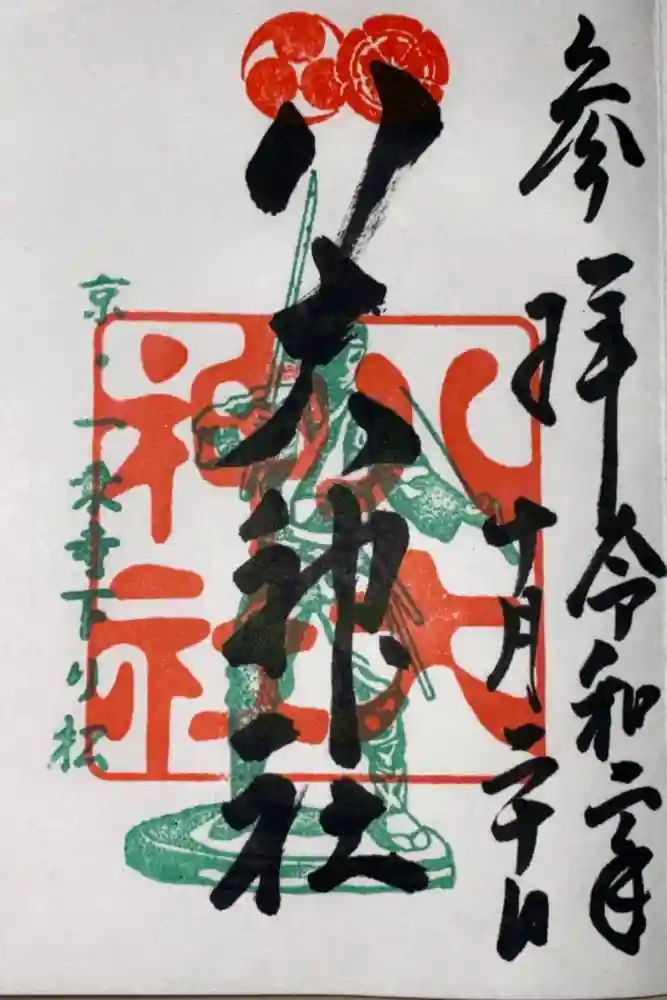 参拝 令和二年
十月二十日
八大神社
八大
神社
京・一乗寺下り松